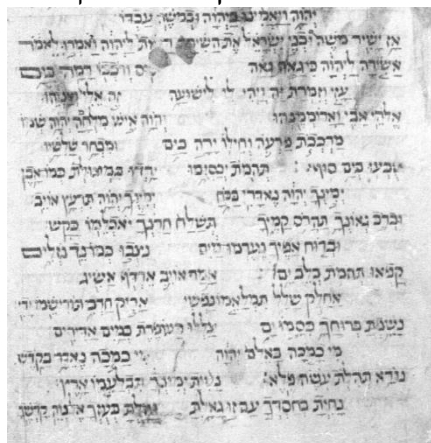 יהוה ויאמינו ביהוה ובמשה עבדו
אז ישיר משה ובני ישראל את השירה ליהוה ויאמרו לאמר
אשירה ליהוה כי גאה גאה סוס ורכבו רמה בים
עזי וזמרת יה ויהי לי לישועה זה אלי ואנוהו
אלהי אבי וארוממנהו יהוה איש מלחמה יהוה שמו
מרכבת פרעה וחילו ירה בים ומבחר שלשיו
טבעו בים סוף תהמת יכסימו ירדו במצולת כמו אבן
ימינך יהוה נאדרי בכח ימינך יהוה תרעץ אויב
וברב גאונך תהרס קמיך תשלח חרנך יאכלמו כקש
וברוח אפיך נערמו מים נצבו כמו נד נזלים
קפאו תהמת בלב ים אמר אויב ארדף אשיג
אחלק שלל תמלאמו נפשי אריק חרבי תורישמו ידי
נשפת ברוחך כסמו ים צללו כעופרת במים אדירים
מי כמכה באלם יהוה מי כמכה נאדר בקדש
נורא תהלת עשה פלא נטית ימינך תבלעמו ארץ
נחית בחסדך עם זו גאלת נהלת בעזך אל נוה קדשך